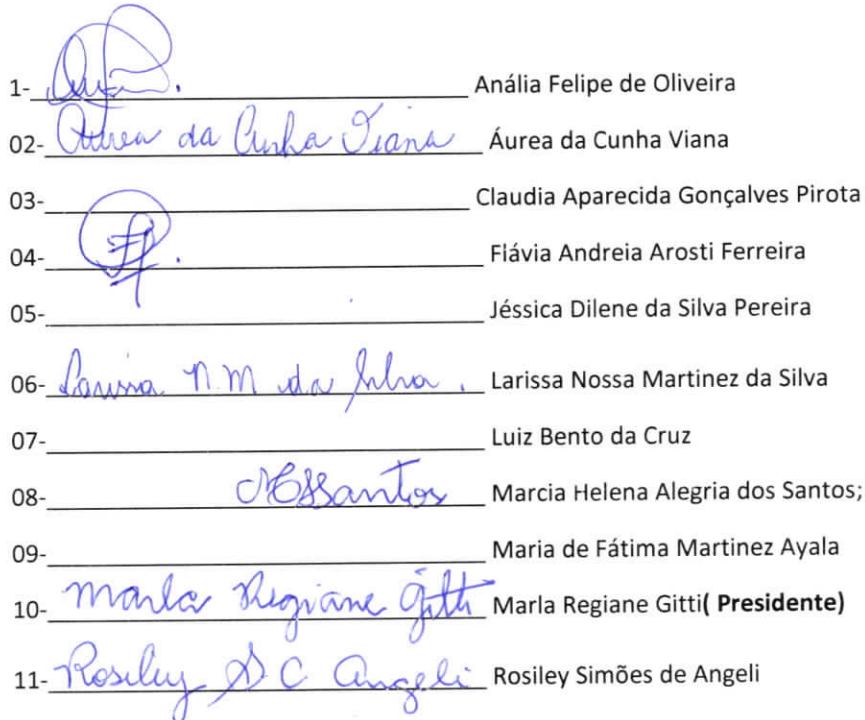 1- Anália Felipe de Oliveira
02- Aurea da Cunha Viana Áurea da Cunha Viana
03- Claudia Aparecida Gonçalves Pirota
04- Flávia Andreia Arosti Ferreira
05- Jéssica Dilene da Silva Pereira
06- Larissa N. M da Silva. Larissa Nossa Martinez da Silva
07- Luiz Bento da Cruz
08- MHSantos Marcia Helena Alegria dos Santos;
09- Maria de Fátima Martinez Ayala
10- Marla Regiane Gitti Marla Regiane Gitti( Presidente)
11- Rosiley S C Angeli Rosiley Simões de Angeli